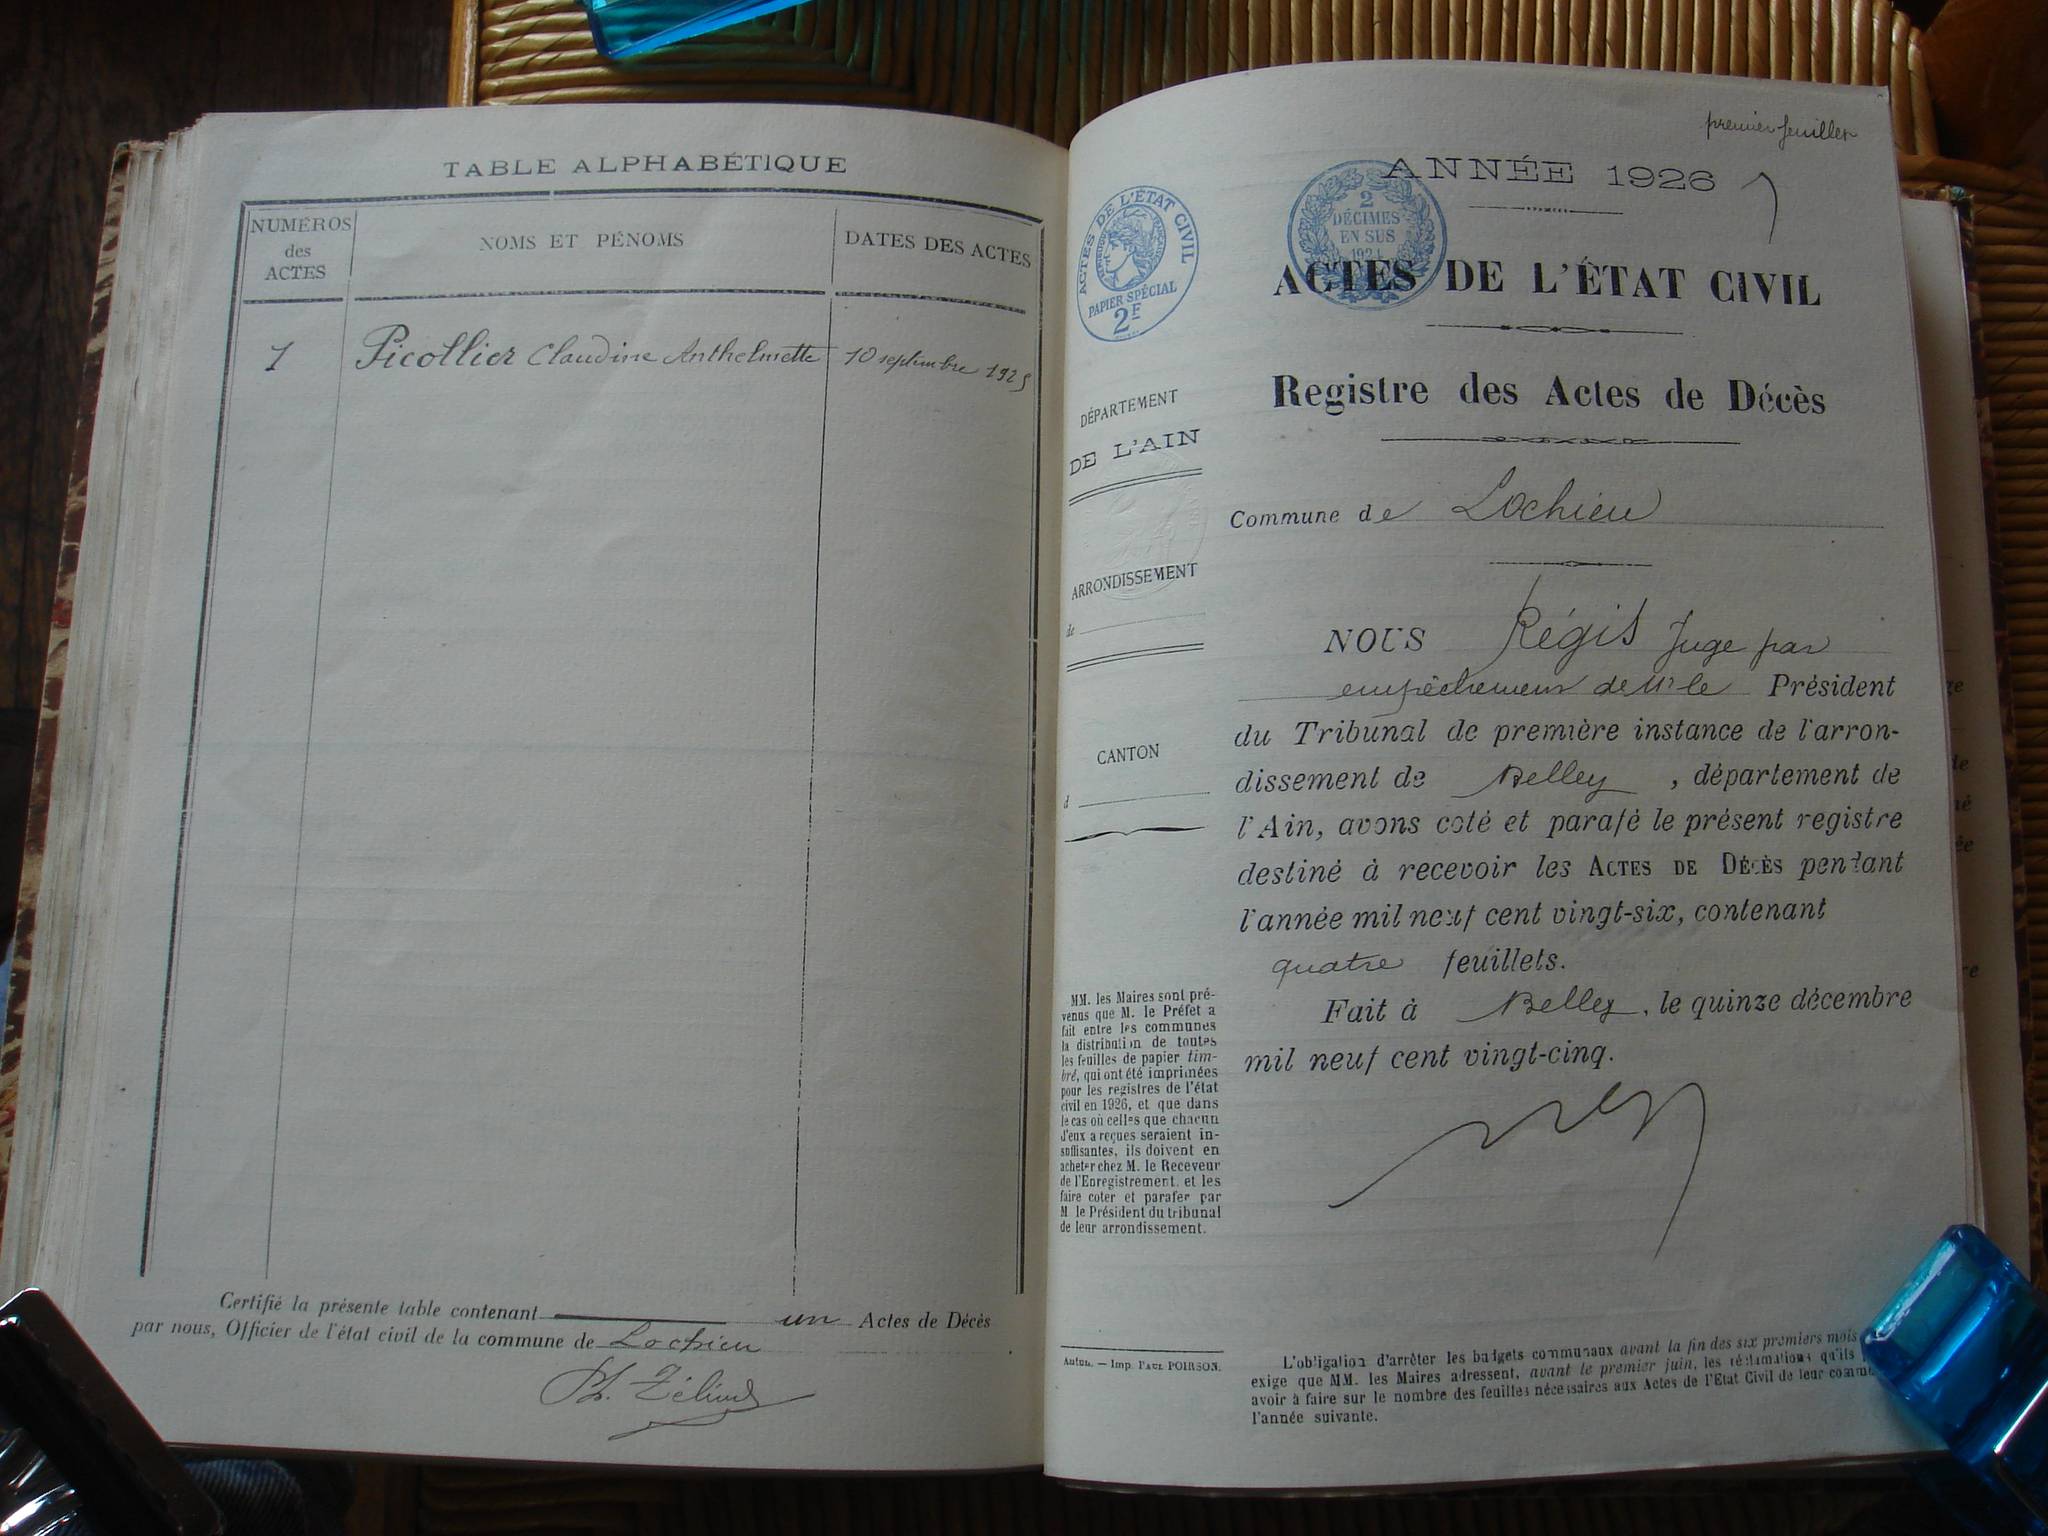 TABLE ALPHABÉTIQUE
NUMÉROS
des
ACTES
NOMS ET PÉNOMS
DATES DES ACTES
1
Picollier Claudine Anthelmette
10 septembre 1925
Certifié la présente table contenant un Actes de Décès
par nous, Officier de l'état civil de la commune de Lochieu
premier feuillet
ANNÉE 1926
ACTES DE L'ÉTAT CIVIL
PAPIER SPÉCIAL
2F
2
DÉCIMES
EN SUS
1924
ACTES DE L'ÉTAT CIVIL
Registre des Actes de Décès
DÉPARTEMENT
DE L'AIN
ARRONDISSEMENT
de
CANTON
d
Commune de Lochieu
NOUS Régis Juge par
empêchement de Mr le Président
du Tribunal de première instance de l'arron-
dissement de Belley, département de
l'Ain, avons coté et parafé le présent registre
destiné à recevoir les ACTES DE DÉCÈS pendant
l'année mil neuf cent vingt-six, contenant
quatre feuillets.
Fait à Belley, le quinze décembre
mil neuf cent vingt-cinq.
MM. les Maires sont pré-
venus que M. le Préfet a
fait entre les communes
la distribution de toutes
les feuilles de papier tim-
bré, qui ont été imprimées
pour les registres de l'état
civil en 1926, et que dans
le cas où celles que chacun
d'eux a reçues seraient in-
suffisantes, ils doivent en
acheter chez M. le Receveur
de l'Enregistrement, et les
faire coter et parafer par
M. le Président du tribunal
de leur arrondissement.
Autun. — Imp. PAUL POIRSON.
L'obligation d'arrêter les budgets communaux avant la fin des six premiers mois
exige que MM. les Maires adressent, avant le premier juin, les réclamations qu'ils
avoir à faire sur le nombre des feuilles nécessaires aux Actes de l'Etat Civil de leur
l'année suivante.